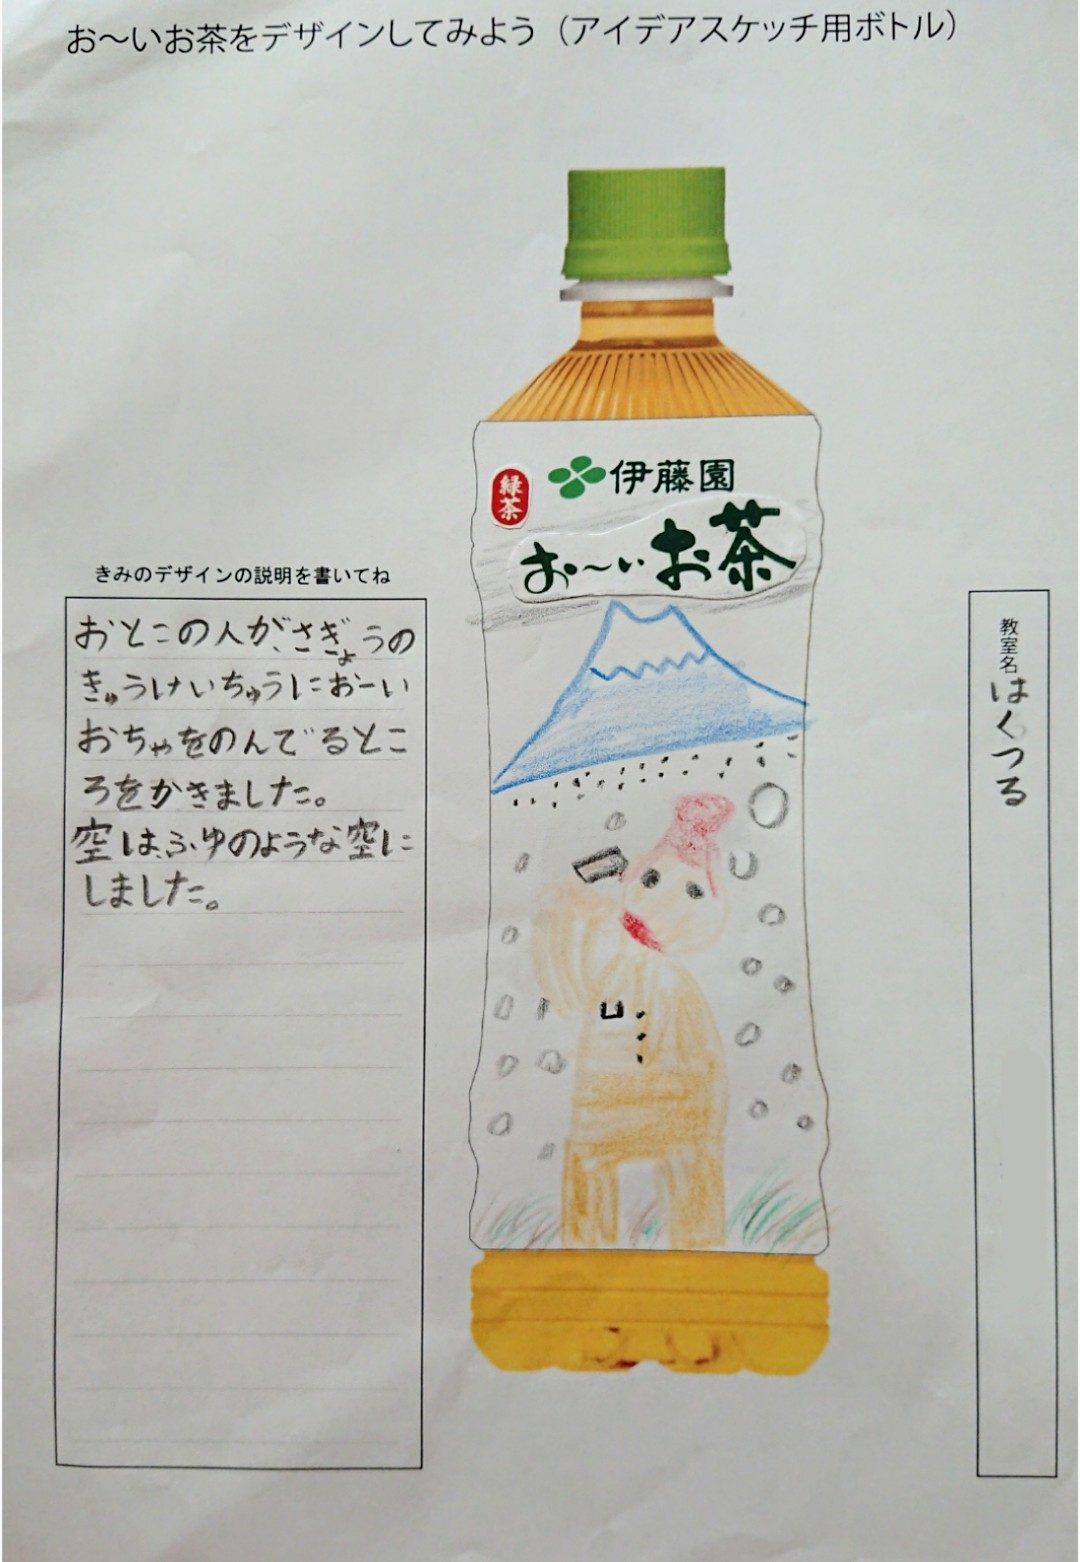 お～いお茶をデザインしてみよう（アイデアスケッチ用ボトル）
緑茶
伊藤園
お～いお茶
きみのデザインの説明を書いてね
おとこの人が、さぎょうの
きゅうけいちゅうにおーい
おちゃをのんでるとこ
ろをかきました。
空は、ふゆのような空に
しました。
教室名
はくつる